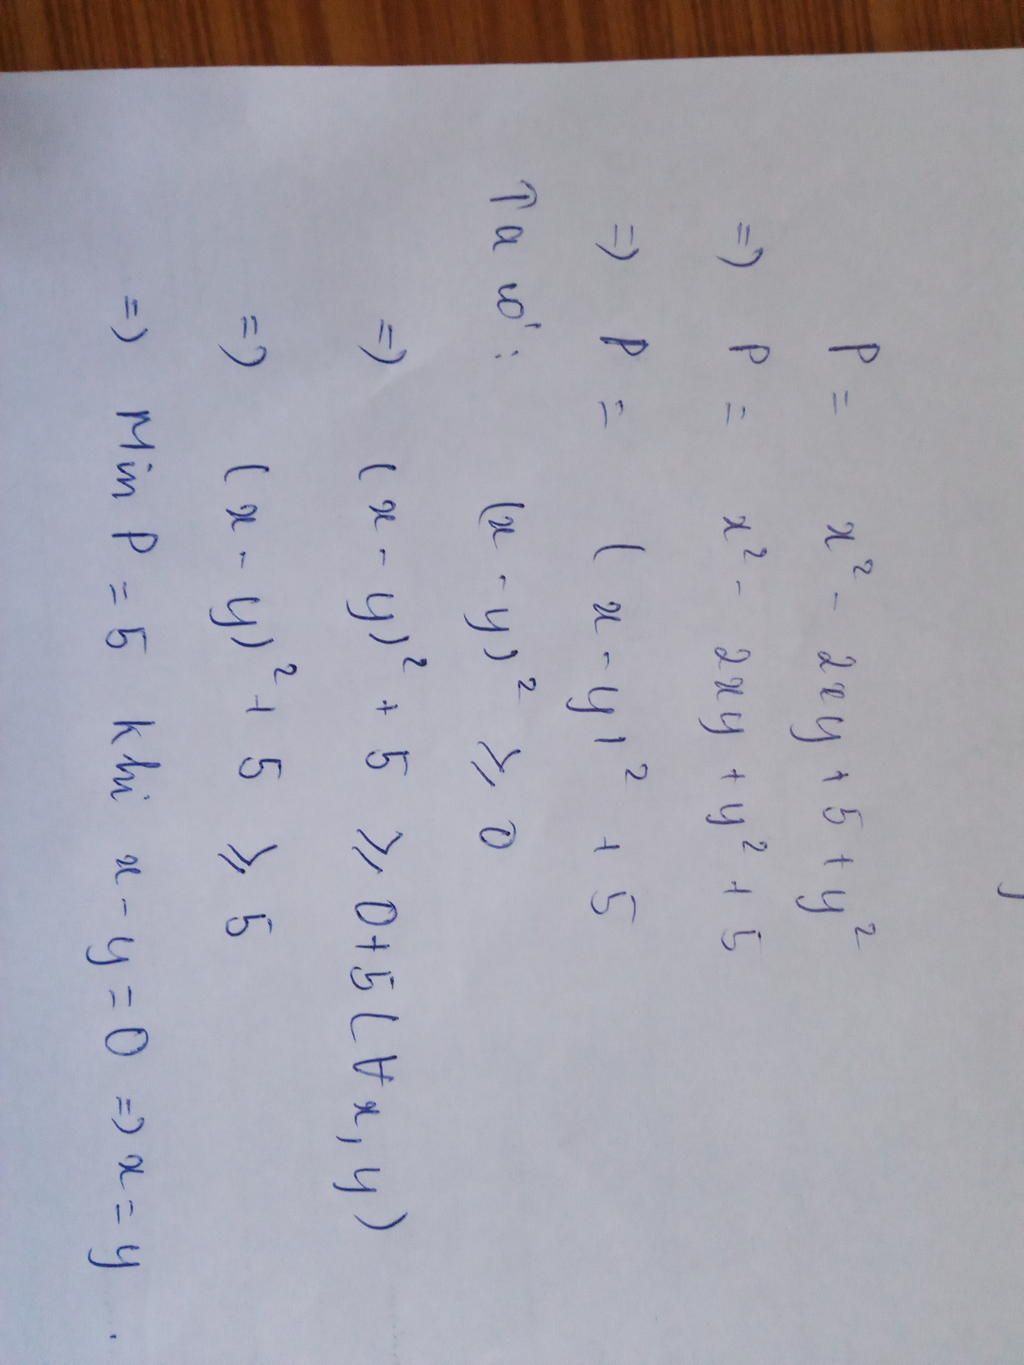 P = x² - 2xy + 5 + y²
=> P = x² - 2xy + y² + 5
=> P = (x - y)² + 5
Ta có: (x - y)² ⩾ 0
=> (x - y)² + 5 ⩾ 0+5 (∀x, y)
=> (x - y)² + 5 ⩾ 5
=> Min P = 5 khi x - y = 0 => x = y.